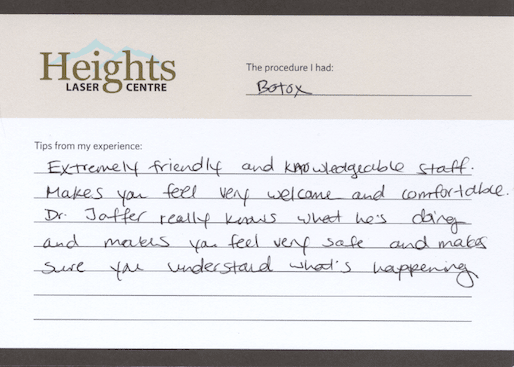 Heights
LASER CENTRE
The procedure I had:
Botox
Tips from my experience:
Extremely friendly and knowledgeable staff.
Makes you feel very welcome and comfortable.
Dr. Jaffer really knows what he's doing
and makes you feel very safe and makes
sure you understand what's happening